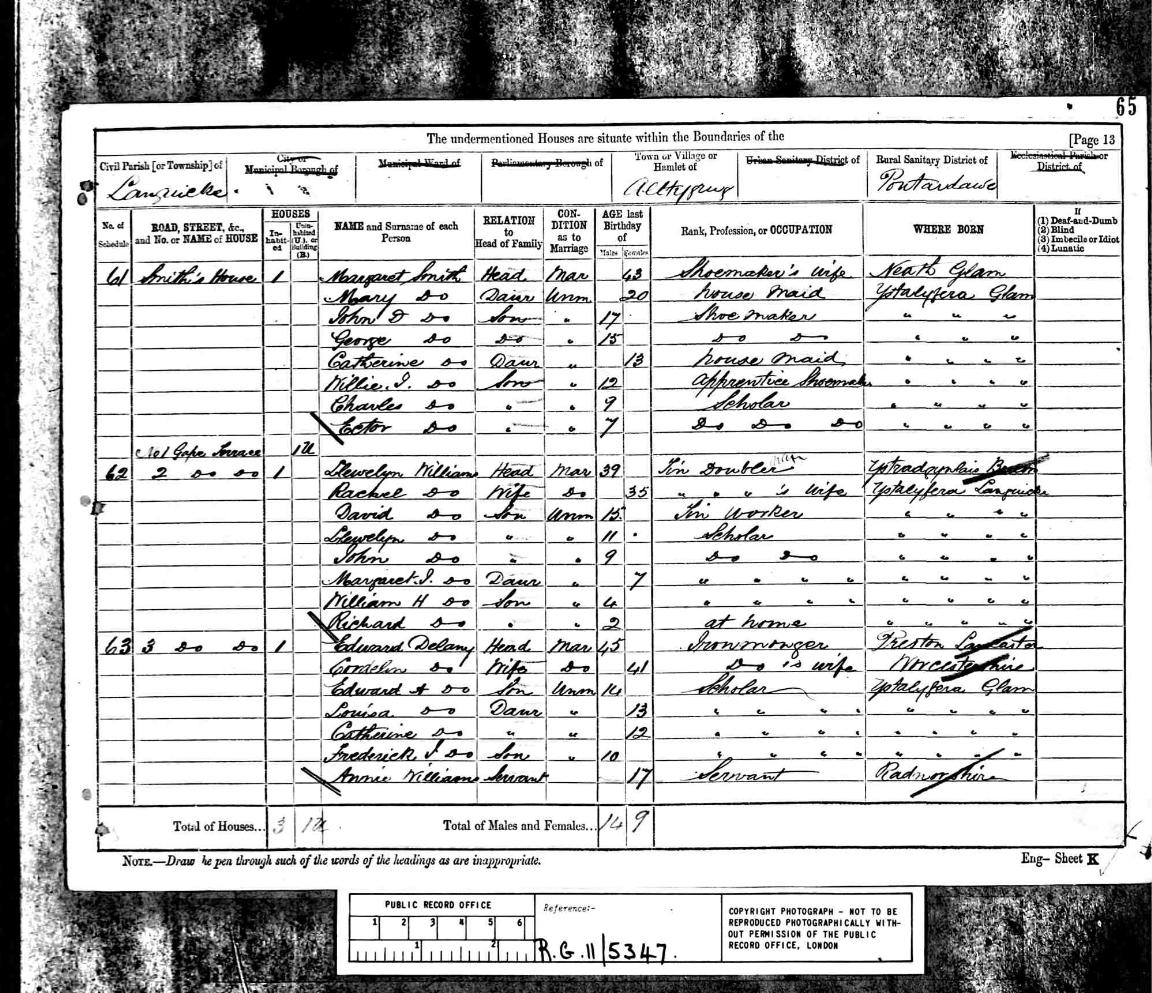 65
The undermentioned Houses are situate within the Boundaries of the
[Page 13
Civil Parish [or Township] of
City or Municipal Borough of
Municipal Ward of
Parliamentary Borough of
Town or Village or Hamlet of
Urban Sanitary District of
Rural Sanitary District of
Ecclesiastical Parish or District of
Languicke Pontardawe
No. of Schedule
ROAD, STREET, &c., and No. or NAME of HOUSE
HOUSES
In-habit-ed
Unin-habited (U.), or Building (B.)
NAME and Surname of each Person
RELATION to Head of Family
CON-DITION as to Marriage
AGE last Birthday of
Males
Females
Rank, Profession, or OCCUPATION
WHERE BORN
If
(1) Deaf-and-Dumb
(2) Blind
(3) Imbecile or Idiot
(4) Lunatic
61 Smith's House 1 Margaret Smith Head Mar 43 Shoemaker's wife Neath Glam
Mary Do Daur Unm 20 house maid Ystalyfera Glam
John D Do Son " 17 Shoe maker " " "
George Do Do " 15 Do Do " " "
Catherine Do Daur " 13 house maid " " " "
Willie. J. Do Son " 12 Apprentice Shoemaker " " " "
Charles Do " " 9 Scholar " " " "
Ector Do " " 7 Do Do Do " " " "
No 1 Terrace 1U
62 2 Do Do 1 Llewelyn Williams Head Mar 39 Tin Doubler Ystradgynlais Brecon
Rachel Do Wife Do 35 " " " 's wife Ystalyfera Languicke
David Do Son Unm 15 Tin worker " " " "
Llewelyn Do " " 11 Scholar " " " "
John Do " " 9 Do Do " " " "
Margaret. J. Do Daur " 7 " " " " " " " "
William H Do Son " 4 " " " " " " " "
Richard Do " " 2 at home " " " "
63 3 Do Do 1 Edward Delany Head Mar 45 Ironmonger Preston Lancaster
Cordelin Do Wife Do 41 Do 's wife Worcestershire
Edward A Do Son Unm 14 Scholar Ystalyfera Glam
Louisa Do Daur " 13 " " " " " " " "
Catherine Do " " 12 " " " " " " " "
Frederick. J Do Son " 10 " " " " " " " "
Annie Williams Servant 17 Servant Radnorshire
Total of Houses... 3 1U Total of Males and Females... 14 9
NOTE.—Draw he pen through such of the words of the headings as are inappropriate.
Eng– Sheet K
PUBLIC RECORD OFFICE
1 2 3 4 5 6
1 2
Reference:-
R.G. 11/5347.
COPYRIGHT PHOTOGRAPH - NOT TO BE
REPRODUCED PHOTOGRAPHICALLY WITH-
OUT PERMISSION OF THE PUBLIC
RECORD OFFICE, LONDON